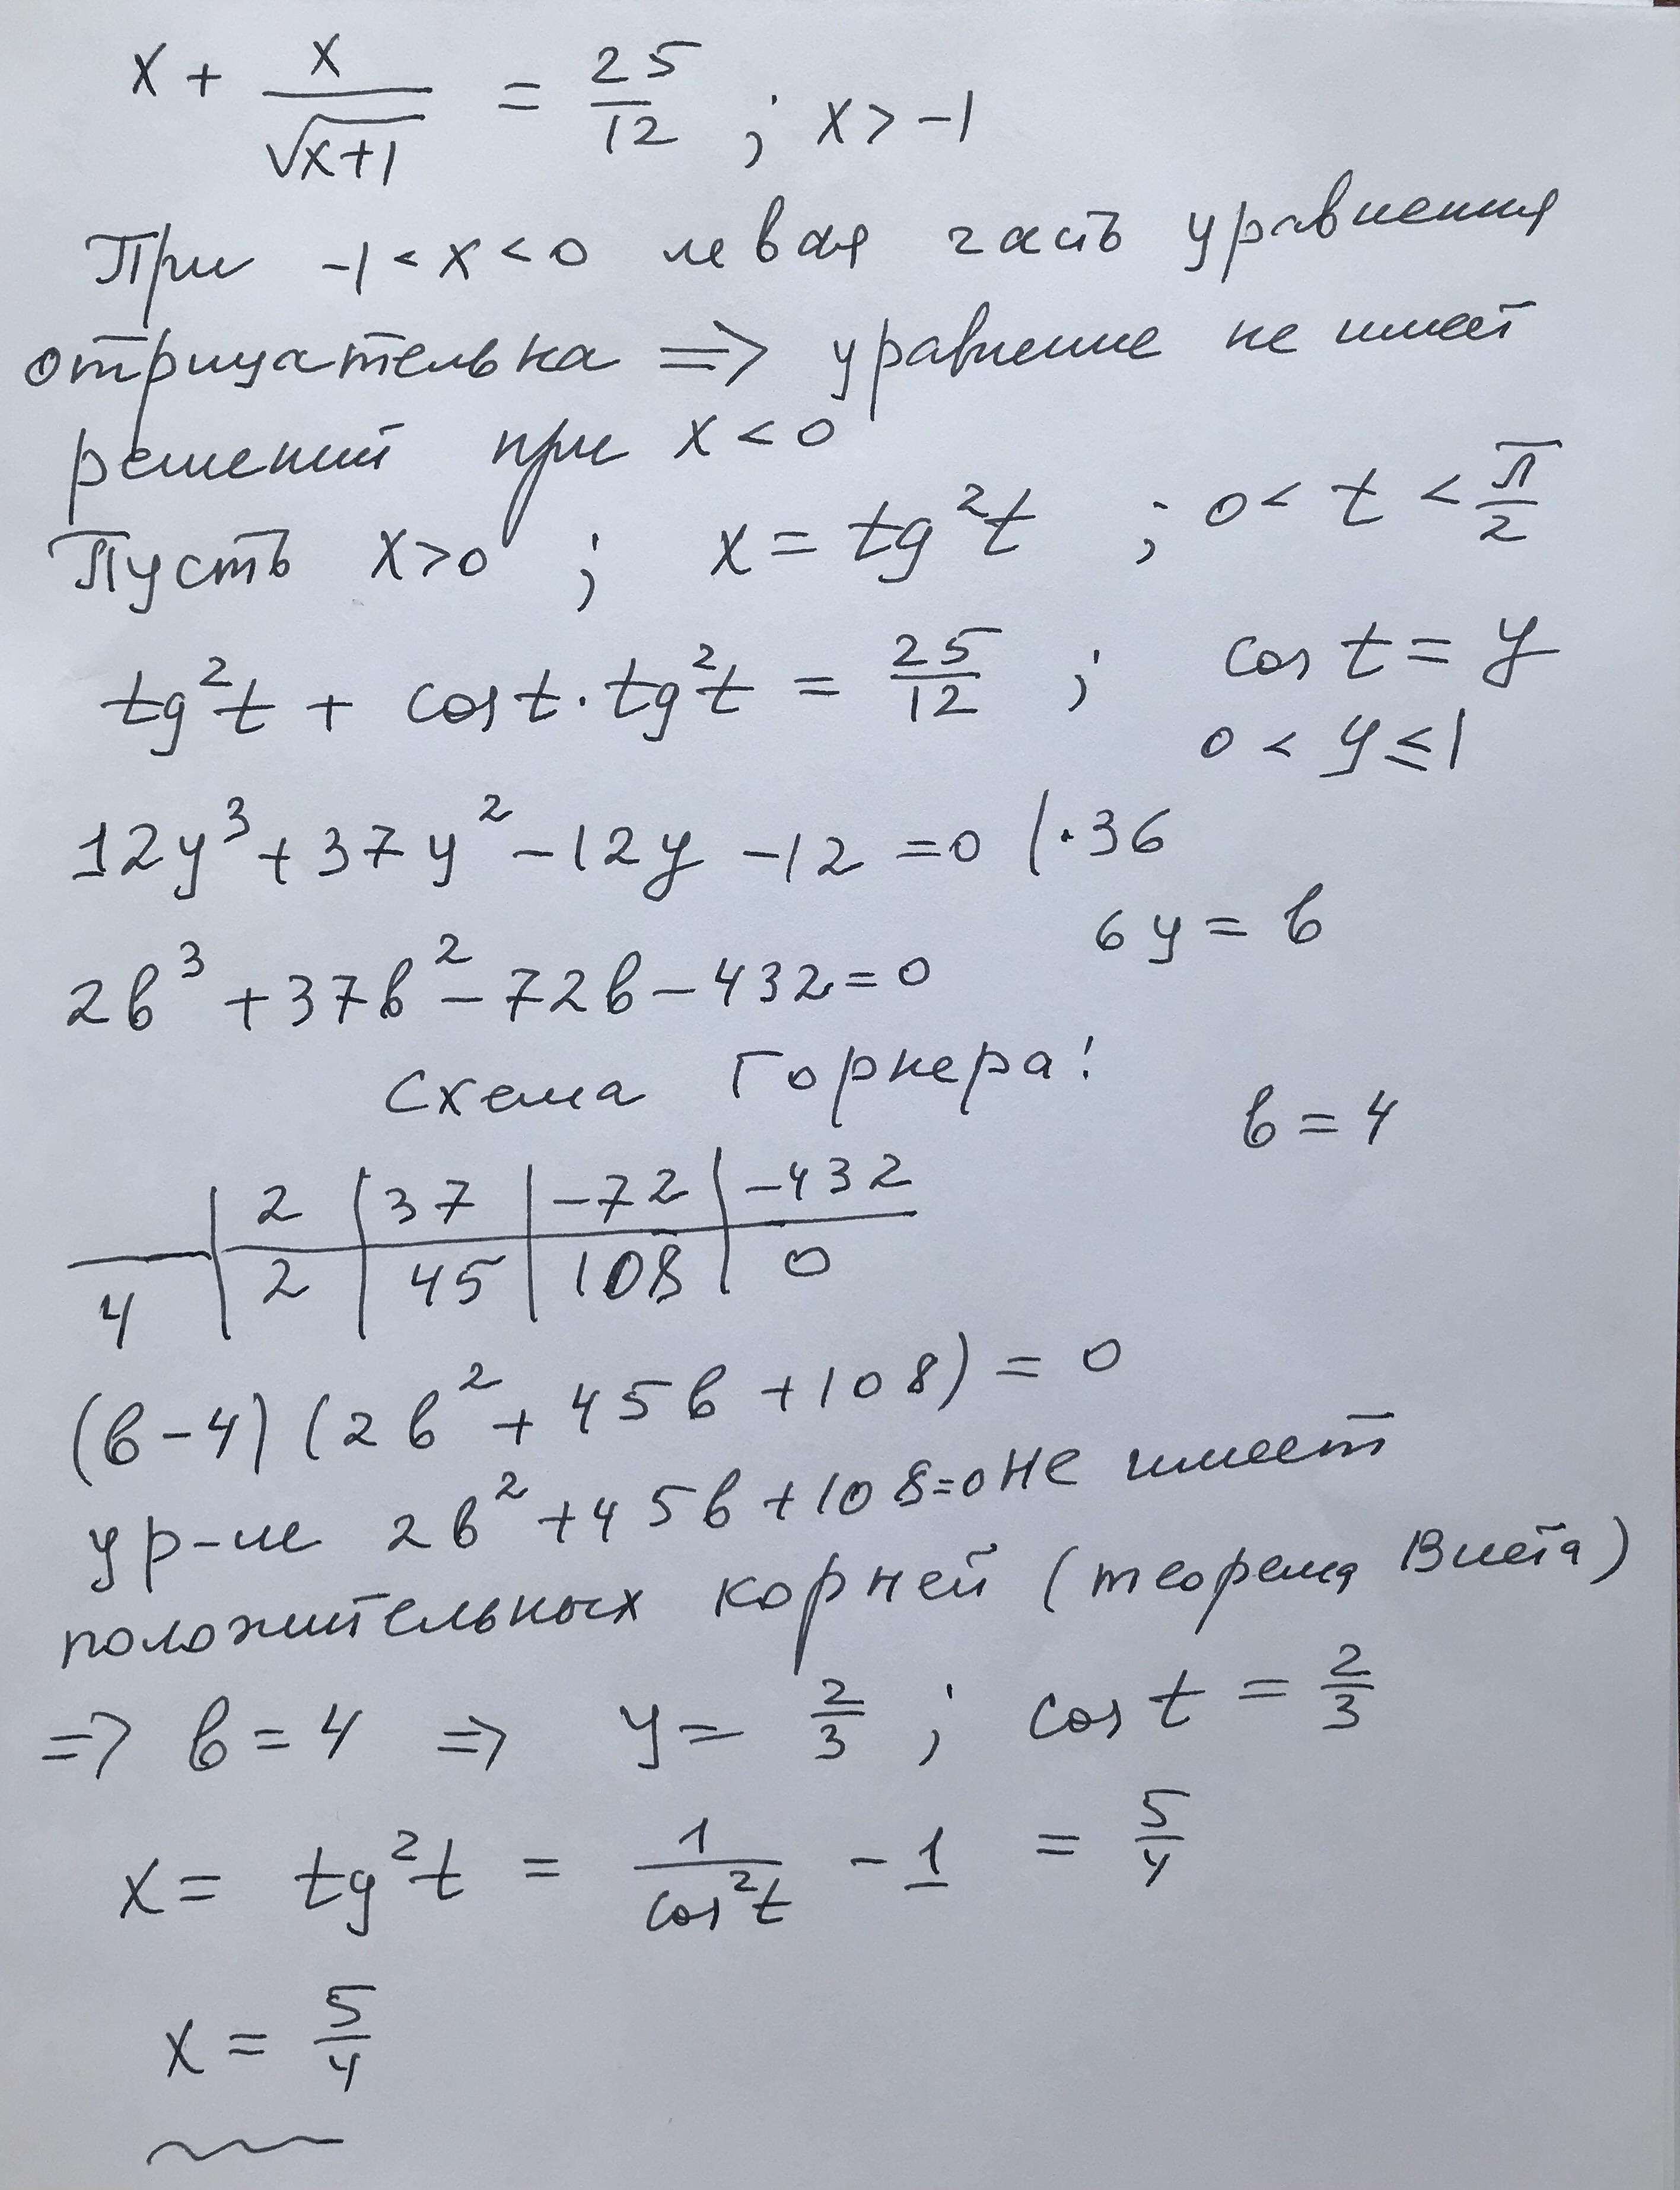 x + x/√(x+1) = 25/12 ; x > -1
При -1 < x < 0 левая часть уравнения
отрицательна => уравнение не имеет
решений при x < 0
Пусть x>0 ; x = tg²t ; 0 < t < π/2
tg²t + cos t · tg²t = 25/12 ; cos t = y
0 < y ≤ 1
12y³ + 37y² - 12y - 12 = 0 | · 36
6y = b
2b³ + 37b² - 72b - 432 = 0
Схема Горнера!
b = 4
| 2 | 37 | -72 | -432
4 | 2 | 45 | 108 | 0
(b - 4) (2b² + 45b + 108) = 0
ур-ие 2b² + 45b + 108 = 0 не имеет
положительных корней (теорема Виета)
=> b = 4 => y = 2/3 ; cos t = 2/3
x = tg²t = 1/cos²t - 1 = 5/4
x = 5/4